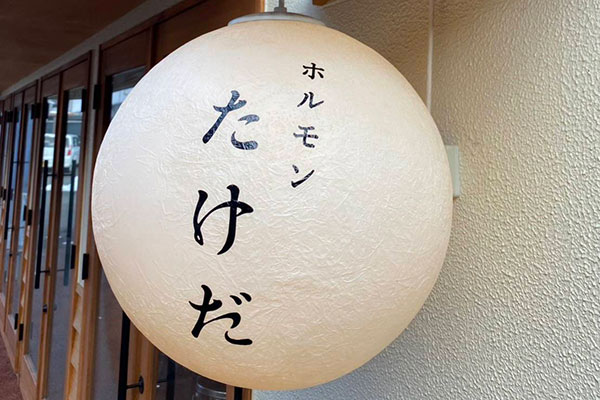 ホルモン
たけだ